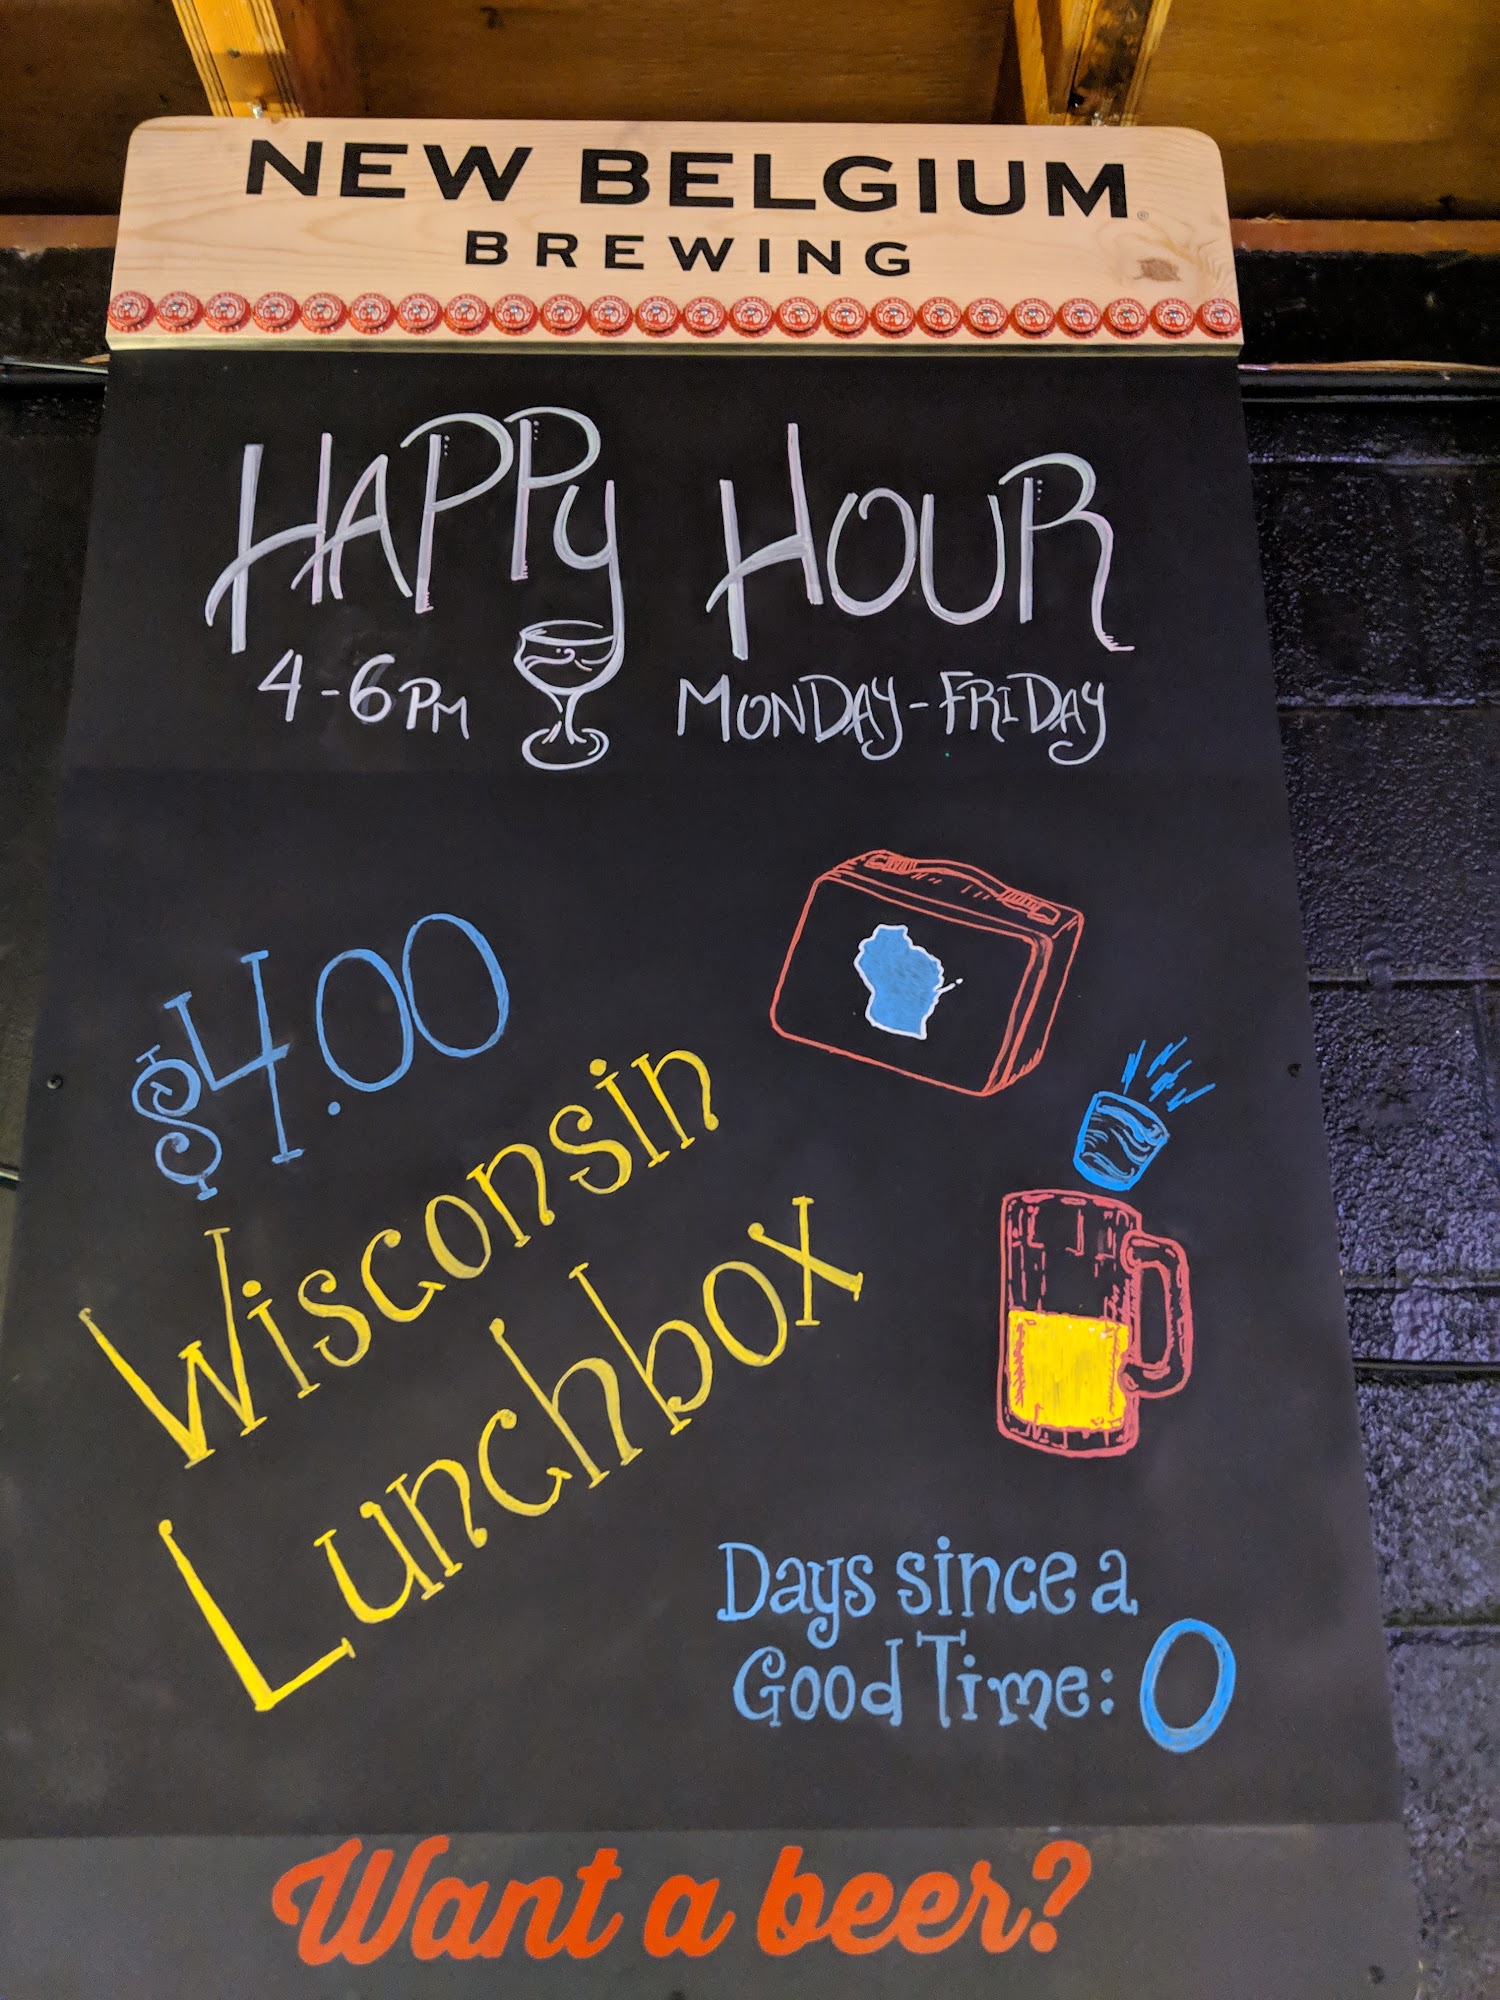 NEW BELGIUM
BREWING
HAPPy HOUR
4-6PM MONDAY-FRIDAY
$4.00
Wisconsin
Lunchbox
Days since a
Good Time: 0
Want a beer?